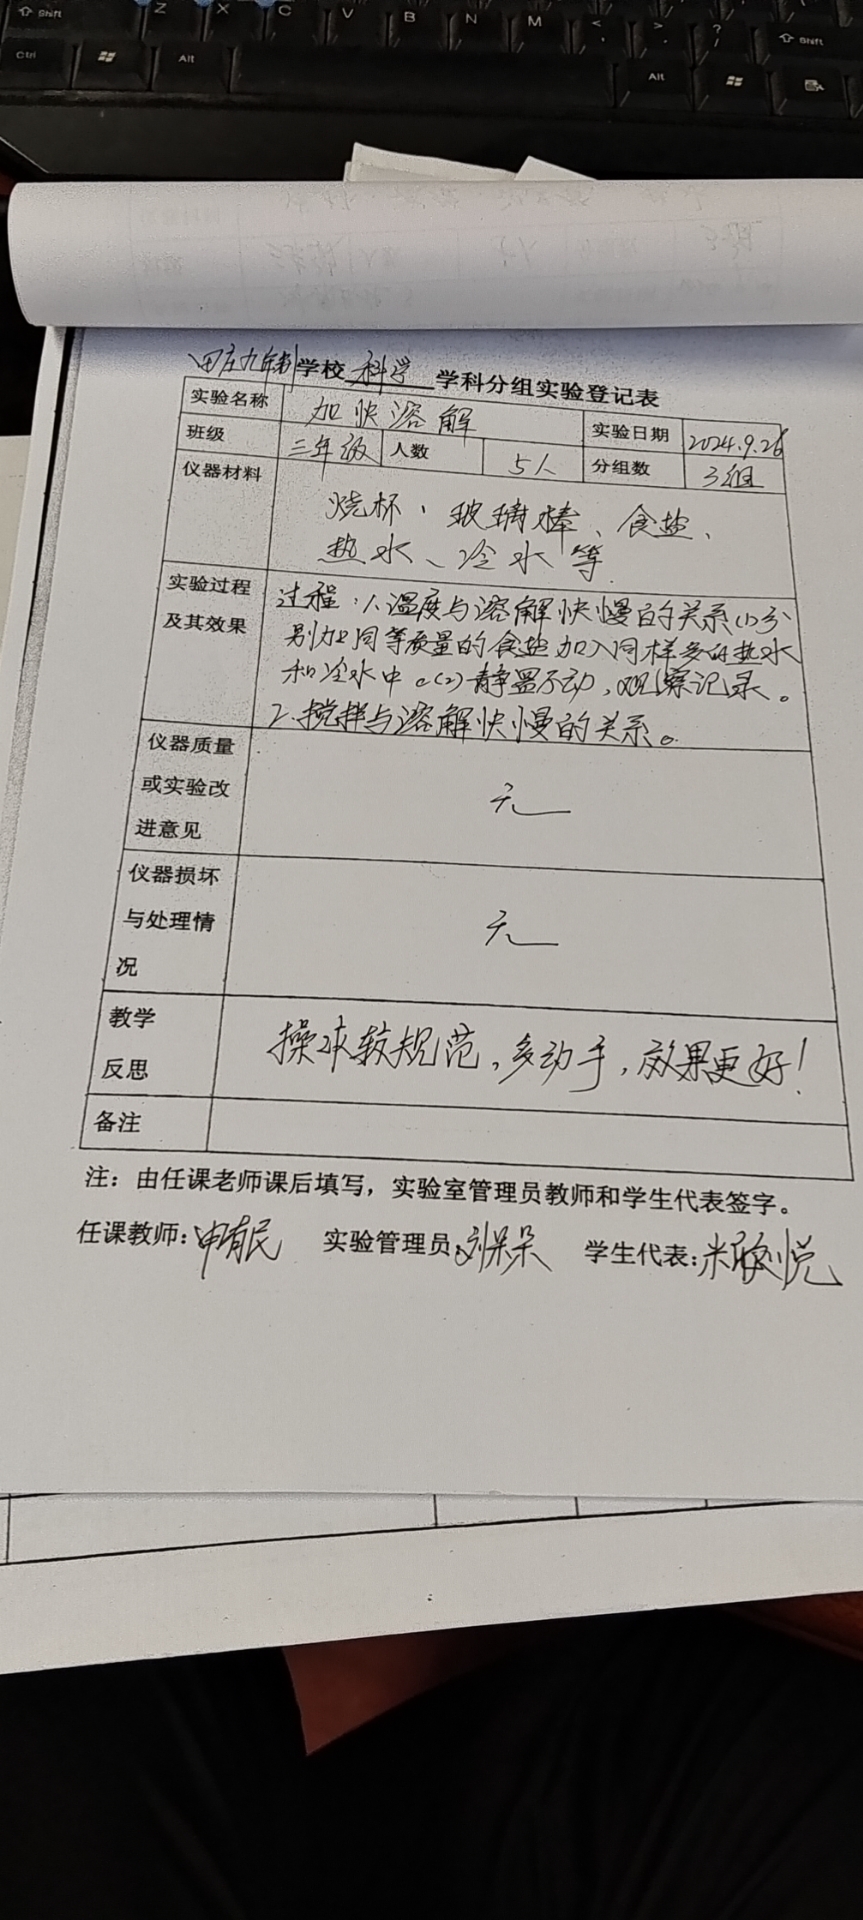 Shift Z X C V B N M < , > . ? / Shift
Ctrl Alt Alt
田庄九年制学校 科学 学科分组实验登记表
实验名称 加快溶解 实验日期 2024.9.26
班级 三年级 人数 5人 分组数 3组
仪器材料 烧杯、玻璃棒、食盐、
热水、冷水等.
实验过程 过程:1.温度与溶解快慢的关系(1)分
及其效果 别加把同等质量的食盐加入同样多的热水
和冷水中。(2)静置不动,观察记录。
2.搅拌与溶解快慢的关系。
仪器质量
或实验改 无
进意见
仪器损坏
与处理情 无
况
教学 操作较规范,多动手,效果更好!
反思
备注
注:由任课老师课后填写,实验室管理员教师和学生代表签字。
任课教师:申有民 实验管理员:刘朵朵 学生代表:米悦